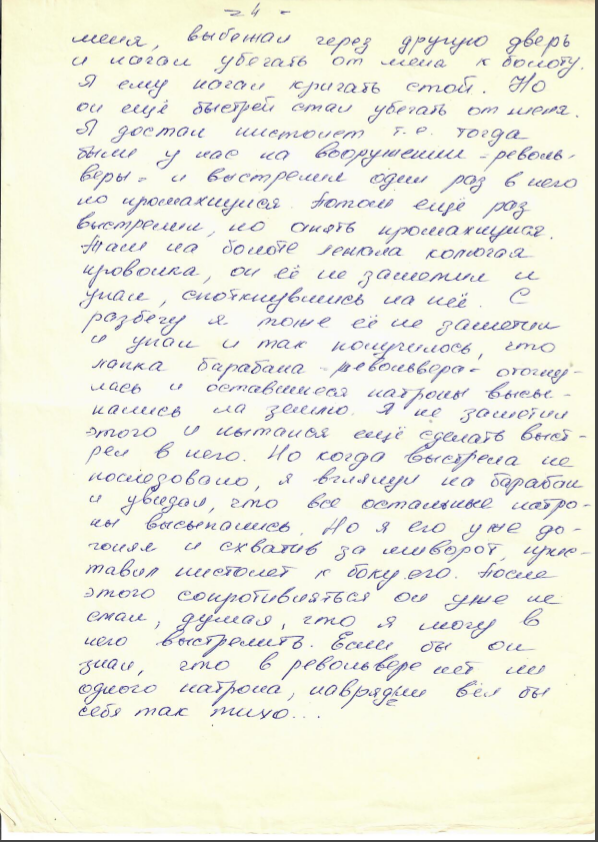 - 4 -
меня, выбежал через другую дверь
и начал убегать от меня к болоту.
Я ему начал кричать стой. Но
он ещё быстрей стал убегать от меня.
Я достал пистолет т.е. тогда
были у нас на вооружении - револь-
веры - и выстрелил один раз в него
но промахнулся. Потом ещё раз
выстрелил, но опять промахнулся.
Там на болоте лежала колючая
проволка, он её не заметил и
упал, споткнувшись на неё. С
разбегу я тоже её не заметил
и упал и так получилось, что
лапка барабана - револьвера - отогну-
лась и оставшиеся патроны высы-
пались на землю. Я не заметил
этого и пытался ещё сделать выст-
рел в него. Но когда выстрела не
последовало, я взглянул на барабан
и увидал, что все остальные патро-
ны высыпались. Но я его уже до-
гонял и схватив за шиворот, прис-
тавил пистолет к боку его. После
этого сопротивляться он уже не
стал, думая, что я могу в
него выстрелить. Если бы он
знал, что в револьвере нет ни
одного патрона, наврядли вёл бы
себя так тихо...